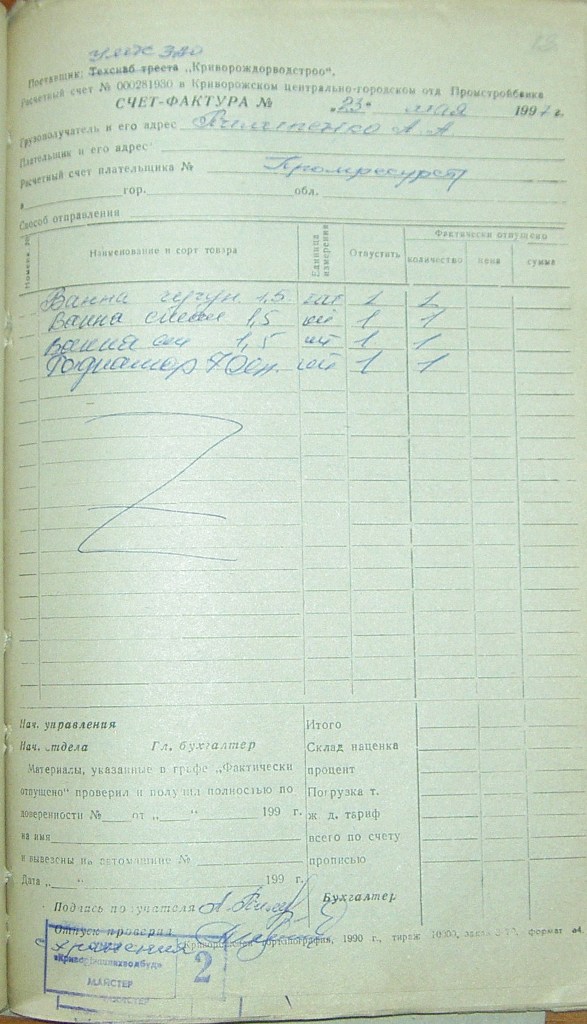 Поставщик: Техснаб треста „Криворождорводстроо".
Расчетный счет № 000281930 в Криворожском центрально-городском отд Промстройбанка
СЧЕТ-ФАКТУРА № „23" мая 1997 г.
Грузополучатель и его адрес А. А.
Плательщик и его адрес:
Расчетный счет плательщика № Промресурст
в гор. обл.
Способ отправления
Наименование и сорт товара
Единица измерения
Отпустить
Фактически отпущено
количество цена сумма
Ванна чугун 1,5 шт 1 1
Ванна 1,5 шт 1 1
Ванна 1,5 шт 1 1
Радиатор 1 1
Нач. управления Итого
Нач. отдела Гл. бухгалтер Склад наценка
Материалы, указанные в графе „Фактически процент
отпущено" проверил и получил полностью по Погрузка т.
доверенности № от „ " 199 г. ж. д. тариф
на имя всего по счету
и вывезены на автомашине № прописью
Дата „ " 199 г.
Подпись получателя Бухгалтер
Отпуск проверил
1990 г., тираж 10000, формат а4.
МАЙСТЕР
2